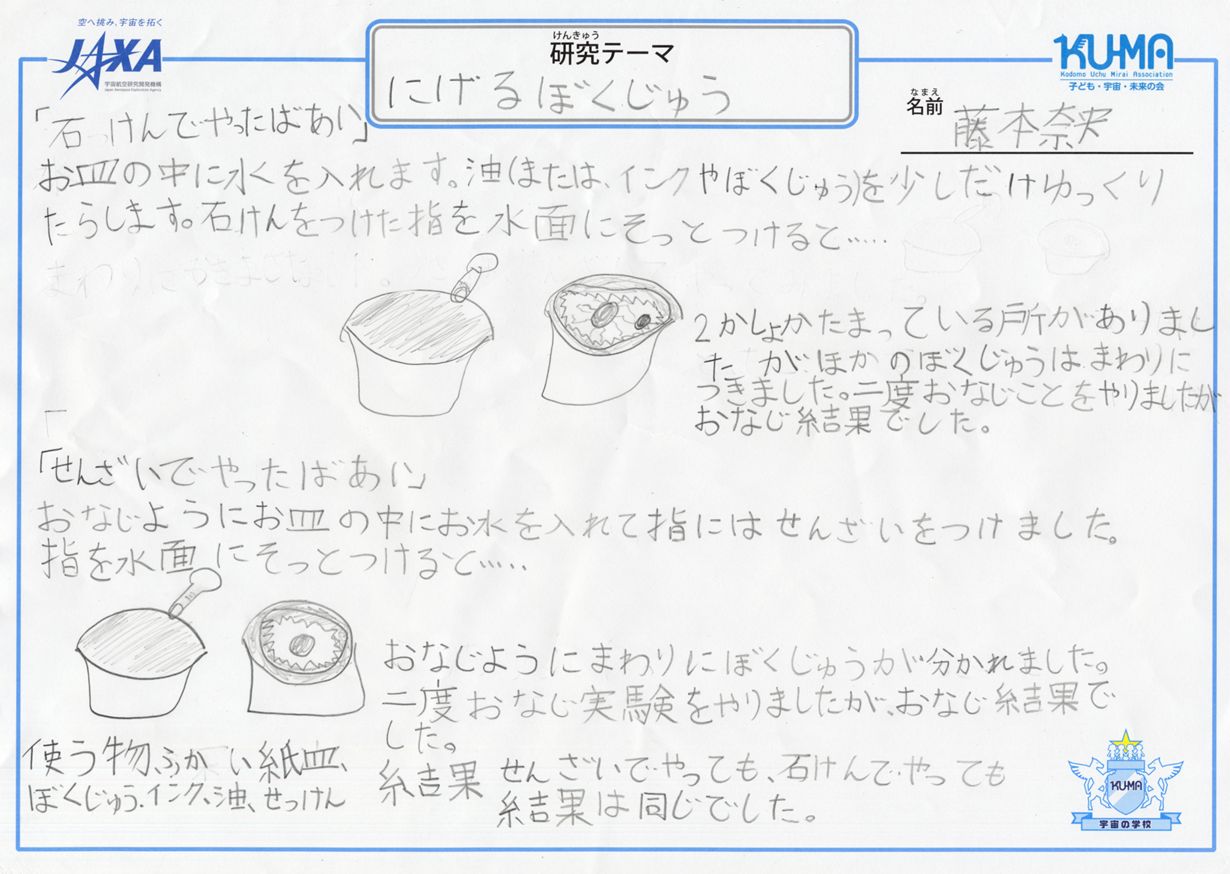 空へ挑み、宇宙を拓く
JAXA
宇宙航空研究開発機構
Japan Aerospace Exploration Agency
けんきゅう
研究テーマ
にげるぼくじゅう
KU-MA
Kodomo Uchu Mirai Association
子ども・宇宙・未来の会
なまえ
名前 藤本奈央
「石けんでやったばあい」
お皿の中に水くを入れます。油(または、インクやぼくじゅう)を少しだけゆっくり
たらします。石けんをつけた指を水面にそっとつけると……
2かしょかたまっている所がありまし
たがほかのぼくじゅうはまわりに
つきました。二度おなじことをやりましたが
おなじ結果でした。
「せんざいでやったばあい」
おなじようにお皿の中にお水を入れて指にはせんざいをつけました。
指を水面にそっとつけると……
おなじようにまわりにぼくじゅうが分かれました。
二度おなじ実験をやりましたが、おなじ結果で
した。
使う物、ふかい紙皿、
ぼくじゅう、インク、油、せっけん
結果 せんざいでやっても、石けんでやっても
結果は同じでした。
KUMA
宇宙の学校